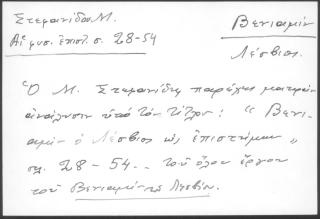 Στεφανίδου Μ.
Αἱ φυσ. ἐπιστ. σ. 28-54
Βενιαμίν
Λέσβιος.
Ὁ Μ. Στεφανίδης παρέχει μακρὰν
ἀνάλυσιν ὑπὸ τὸν τίτλον: "Βενι-
αμὶν ὁ Λέσβιος ὡς ἐπιστήμων"
σελ. 28-54.. τοῦ ὅλου ἔργου
τοῦ Βενιαμὶν τοῦ Λεσβίου.